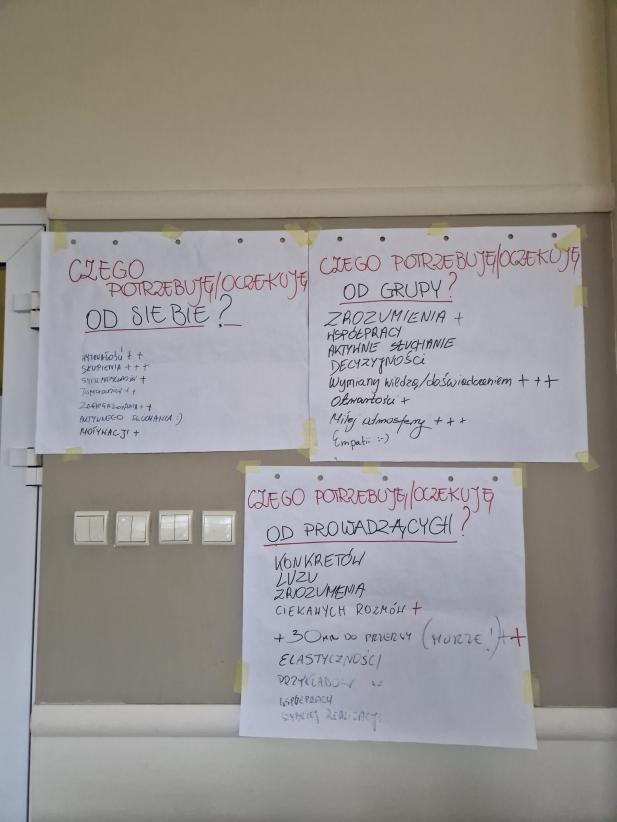 CZEGO
POTRZEBUJĘ/OCZEKUJĘ
OD SIEBIE?
WYTRWAŁOŚCI + +
SKUPIENIA + + +
+
+ +
ZAANGAŻOWANIA + +
AKTYWNEGO SŁUCHANIA :)
MOTYWACJI +
CZEGO POTRZEBUJĘ/OCZEKUJĘ
OD GRUPY?
ZROZUMIENIA +
WSPÓŁPRACY
AKTYWNE SŁUCHANIE
DECYZYJNOŚCI
Wymiany wiedzą/doświadczeniem + + +
Otwartości +
Miłej atmosfery + + +
Empatii :-)
CZEGO POTRZEBUJĘ/OCZEKUJĘ
OD PROWADZĄCYCH?
KONKRETÓW
LUZU
ZROZUMIENIA
CIEKAWYCH ROZMÓW +
+ 30 MIN DO PRZERWY (MORZE!) + +
ELASTYCZNOŚCI
PRZYKŁADÓW
WSPÓŁPRACY
SZYBKIEJ REALIZACJI